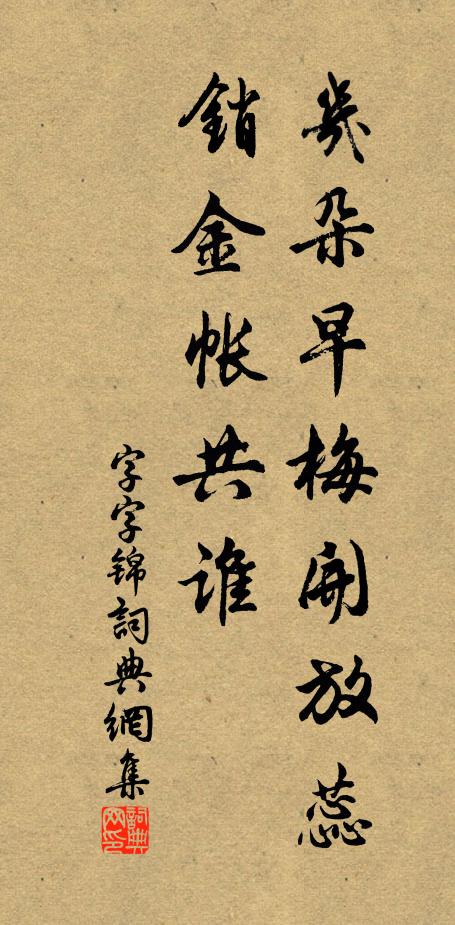 幾朵早梅開放蕊
銷金帳共誰
字字錦詞典網集
詞典网印